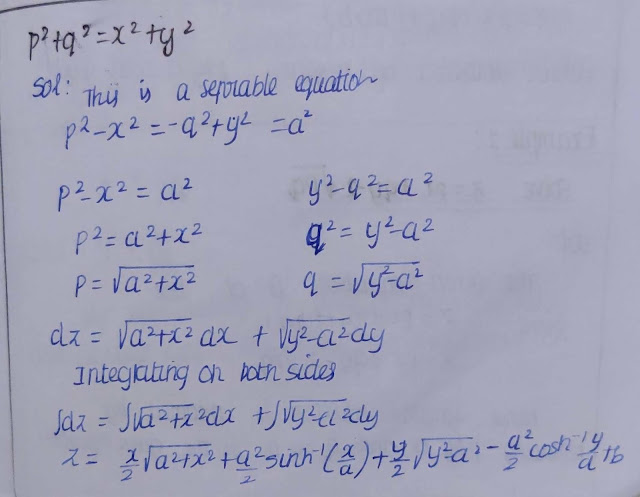 p²+q²=x²+y²
Sol: This is a seprable equation
p²-x² = -q²+y² = a²
p²-x² = a² y²-q²=a²
p² = a²+x² q² = y²-a²
p = √a²+x² q = √y²-a²
dz = √a²+x² dx + √y²-a² dy
Integrating on both sides
∫dz = ∫√a²+x² dx + ∫√y²-a² dy
z = x/2 √a²+x² + a²/2 sinh⁻¹(x/a) + y/2 √y²-a² - a²/2 cosh⁻¹ y/a + b